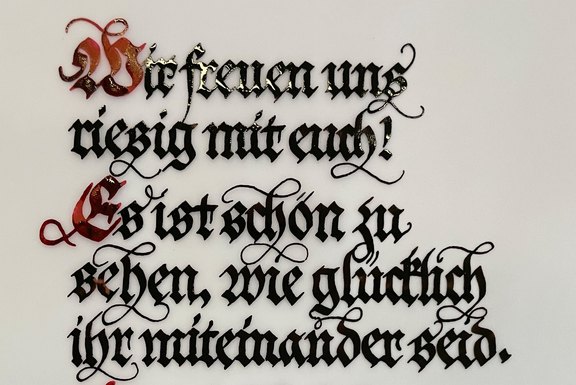 Wir freuen uns
riesig mit euch!
Es ist schön zu
sehen, wie glücklich
ihr miteinander seid.